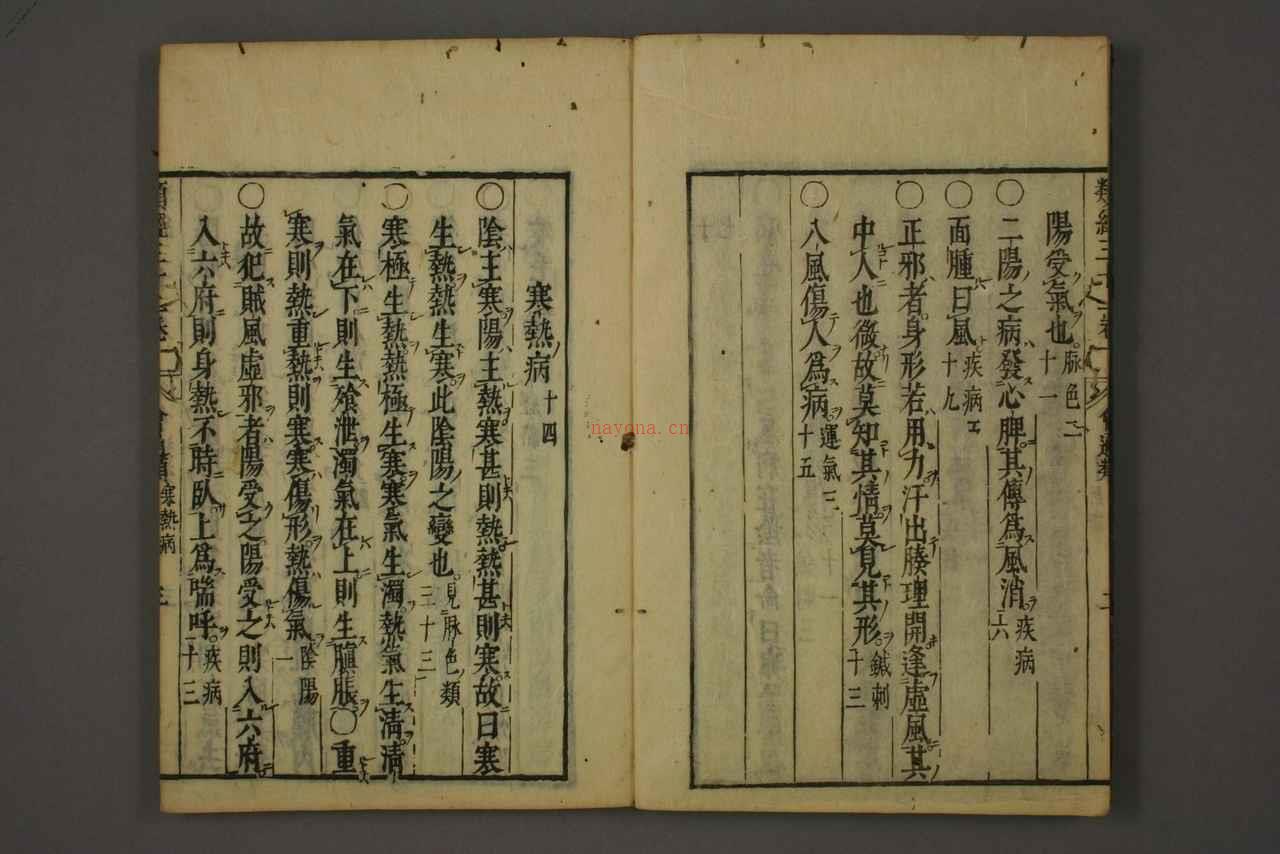 陽受氣也脉色二十一
○二陽之病發心脾其傳爲風消疾病六
○面腫曰風疾病十九
○正邪者身形若用力汗出腠理開逢虛風其
中人也微故莫知其情莫見其形鍼刺十三
○八風傷人爲病運氣三十五
寒熱病十四
○陰主寒陽主熱寒甚則熱熱甚則寒故曰寒
生熱熱生寒此陰陽之變也見脉色類三十三
○寒極生熱熱極生寒寒氣生濁熱氣生清清
氣在下則生飱泄濁氣在上則生䐜脹○重
寒則熱重熱則寒寒傷形熱傷氣陰陽一
○故犯賊風虛邪者陽受之陽受之則入六府
入六府則身熱不時臥上爲喘呼疾病十三
寒熱病
nayona.cn